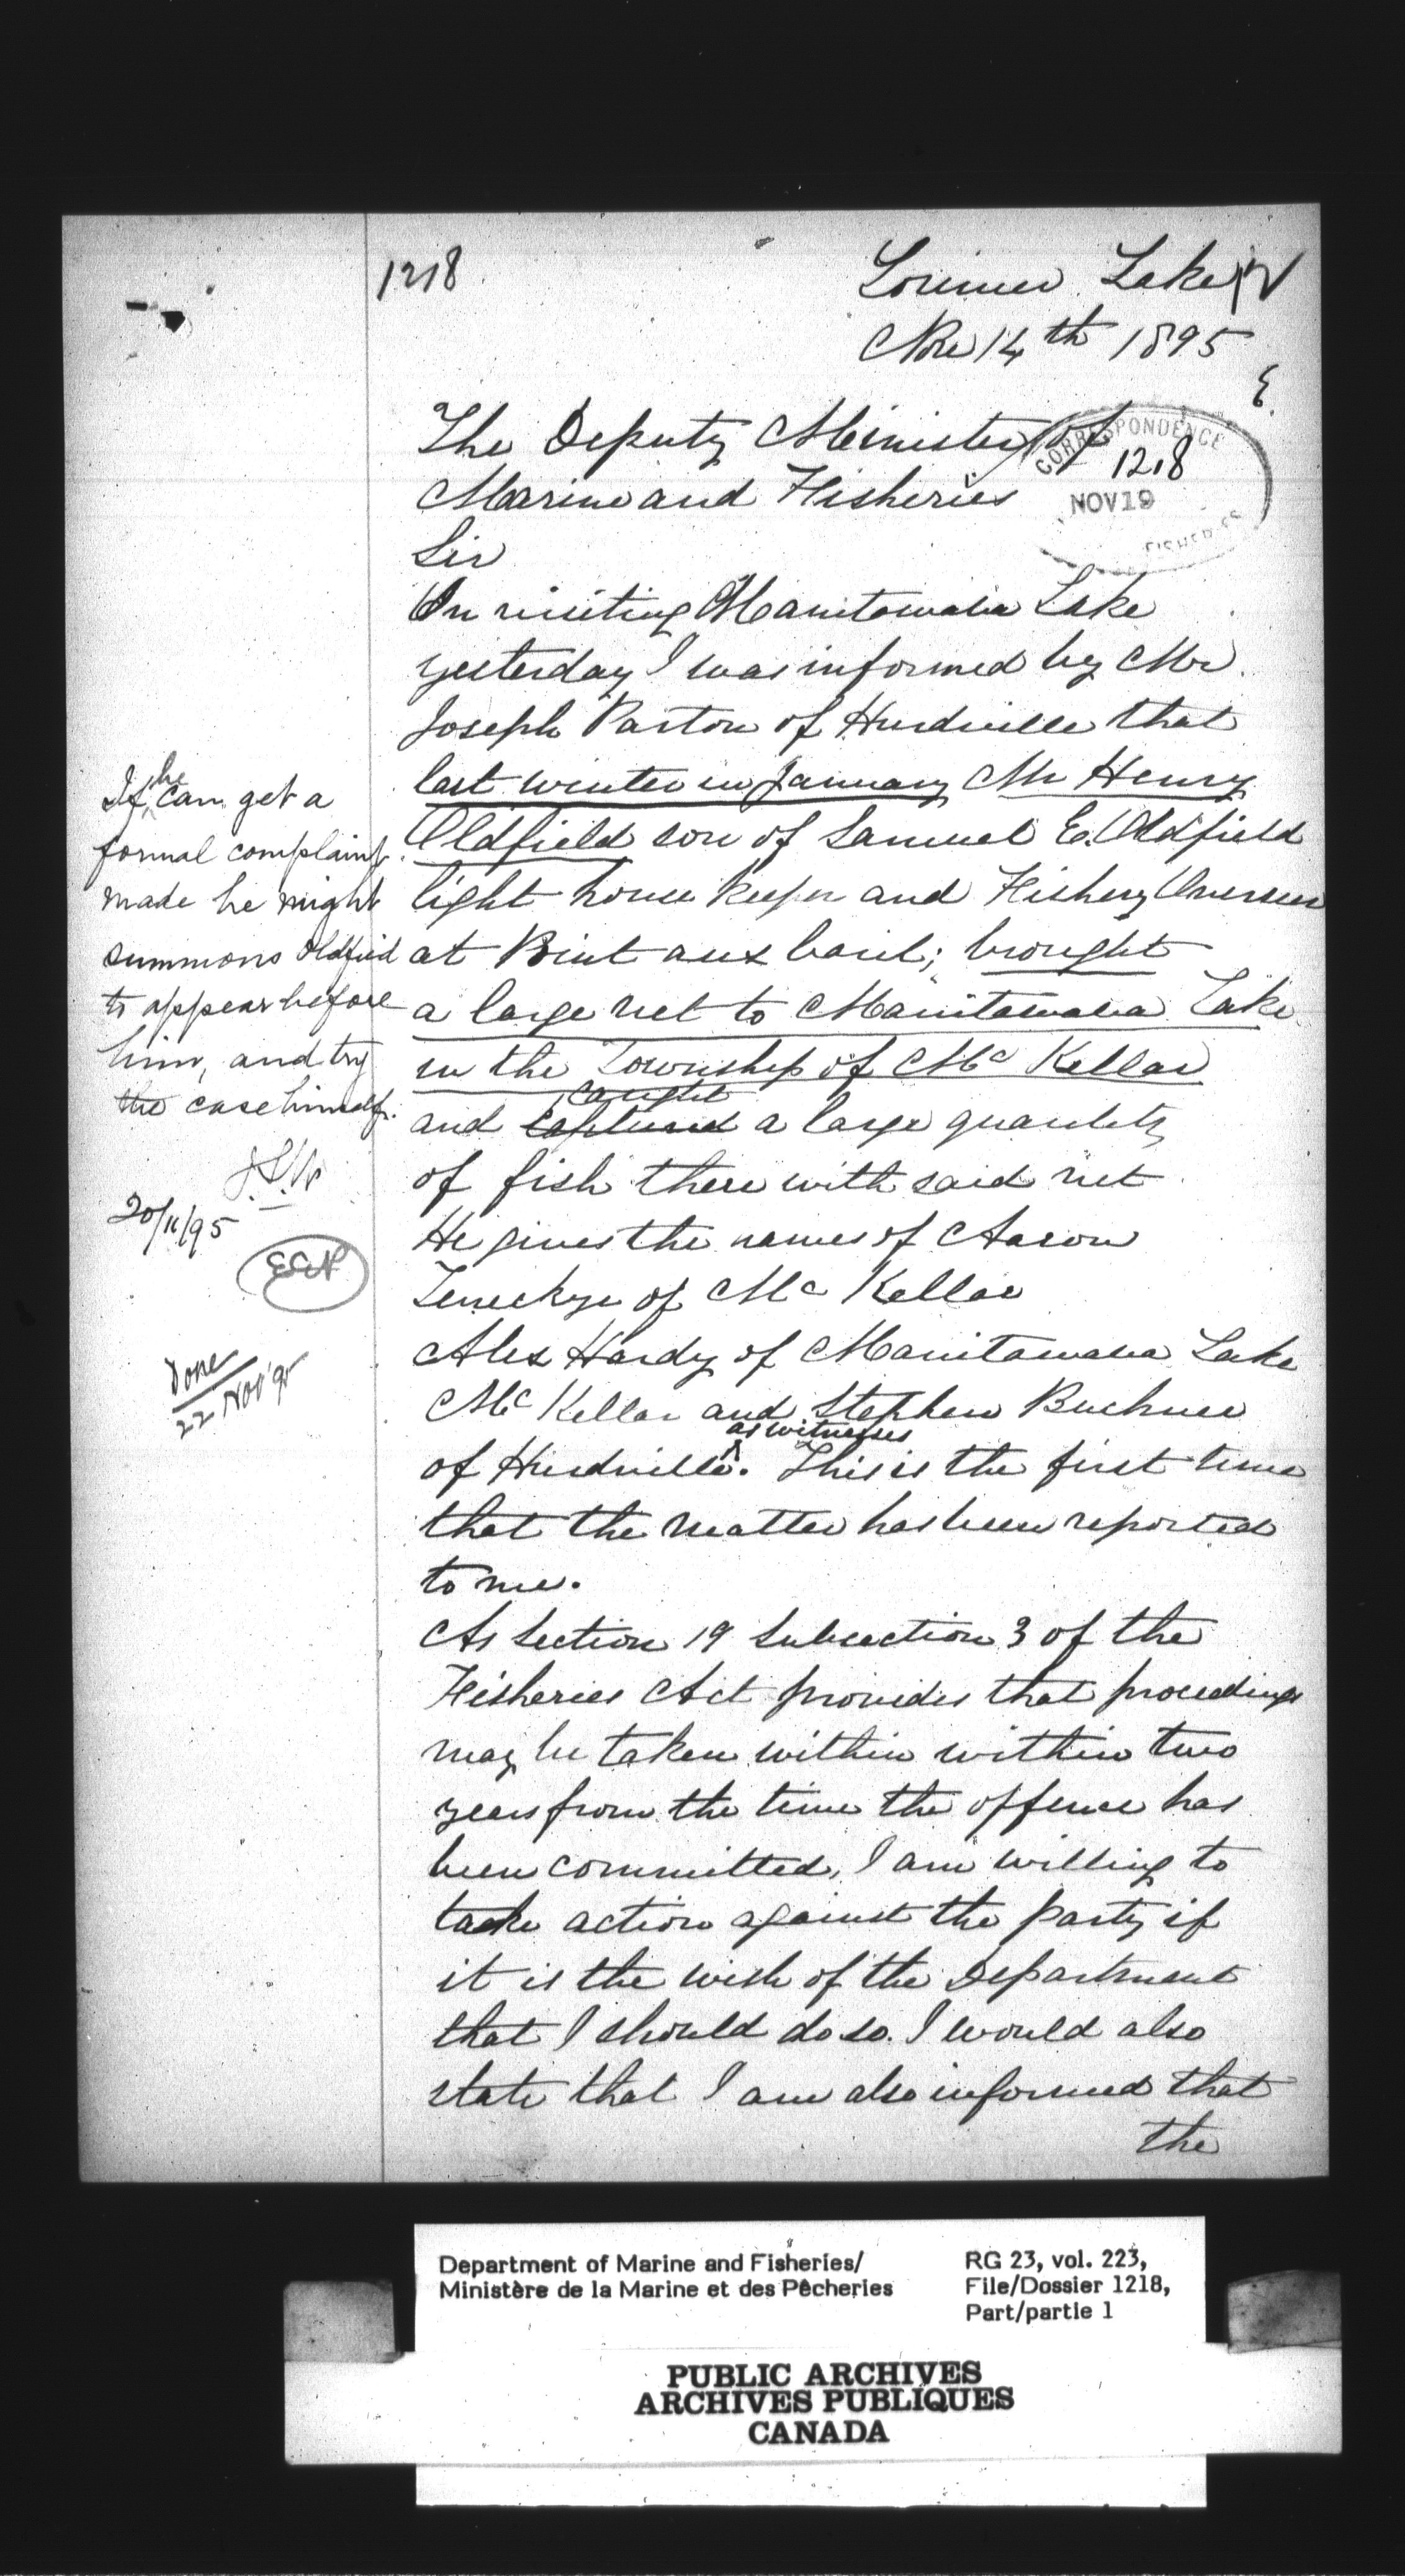 1218
Lorimer Lake
Nov 14th 1895
The Deputy Minister of
CORRESPONDENCE
1218
NOV 19
FISHERIES
Marine and Fisheries
Sir
In visiting Manitowaba Lake
yesterday I was informed by Mr
Joseph Parton of Hurdville that
last winter in January Mr Henry
Oldfield son of Samuel E. Oldfield
light house keeper and Fishery Overseer
at Point aux baril; brought
a large net to Manitowaba Lake
in the Township of McKellar
caught
and captured a large quantity
of fish there with said net
He gives the names of Aaron
of McKellar
Alex Hardy of Manitawaba Lake
McKellar and Stephen Buchner
as witnesses
of Hurdville. This is the first time
that the matter has been reported
to me.
As Section 19 Subsection 3 of the
Fisheries Act provides that proceedings
may be taken within within two
years from the time the offence has
been committed, I am willing to
take action against the party if
it is the wish of the Department
that I should do so. I would also
state that I am also informed that
the
If he can get a
formal complaint
made he might
summons Oldfield
to appear before
him, and try
the case himself.
20/11/95
Done
22 Nov '95
Department of Marine and Fisheries/
Ministère de la Marine et des Pêcheries
RG 23, vol. 223,
File/Dossier 1218,
Part/partie 1
PUBLIC ARCHIVES
ARCHIVES PUBLIQUES
CANADA